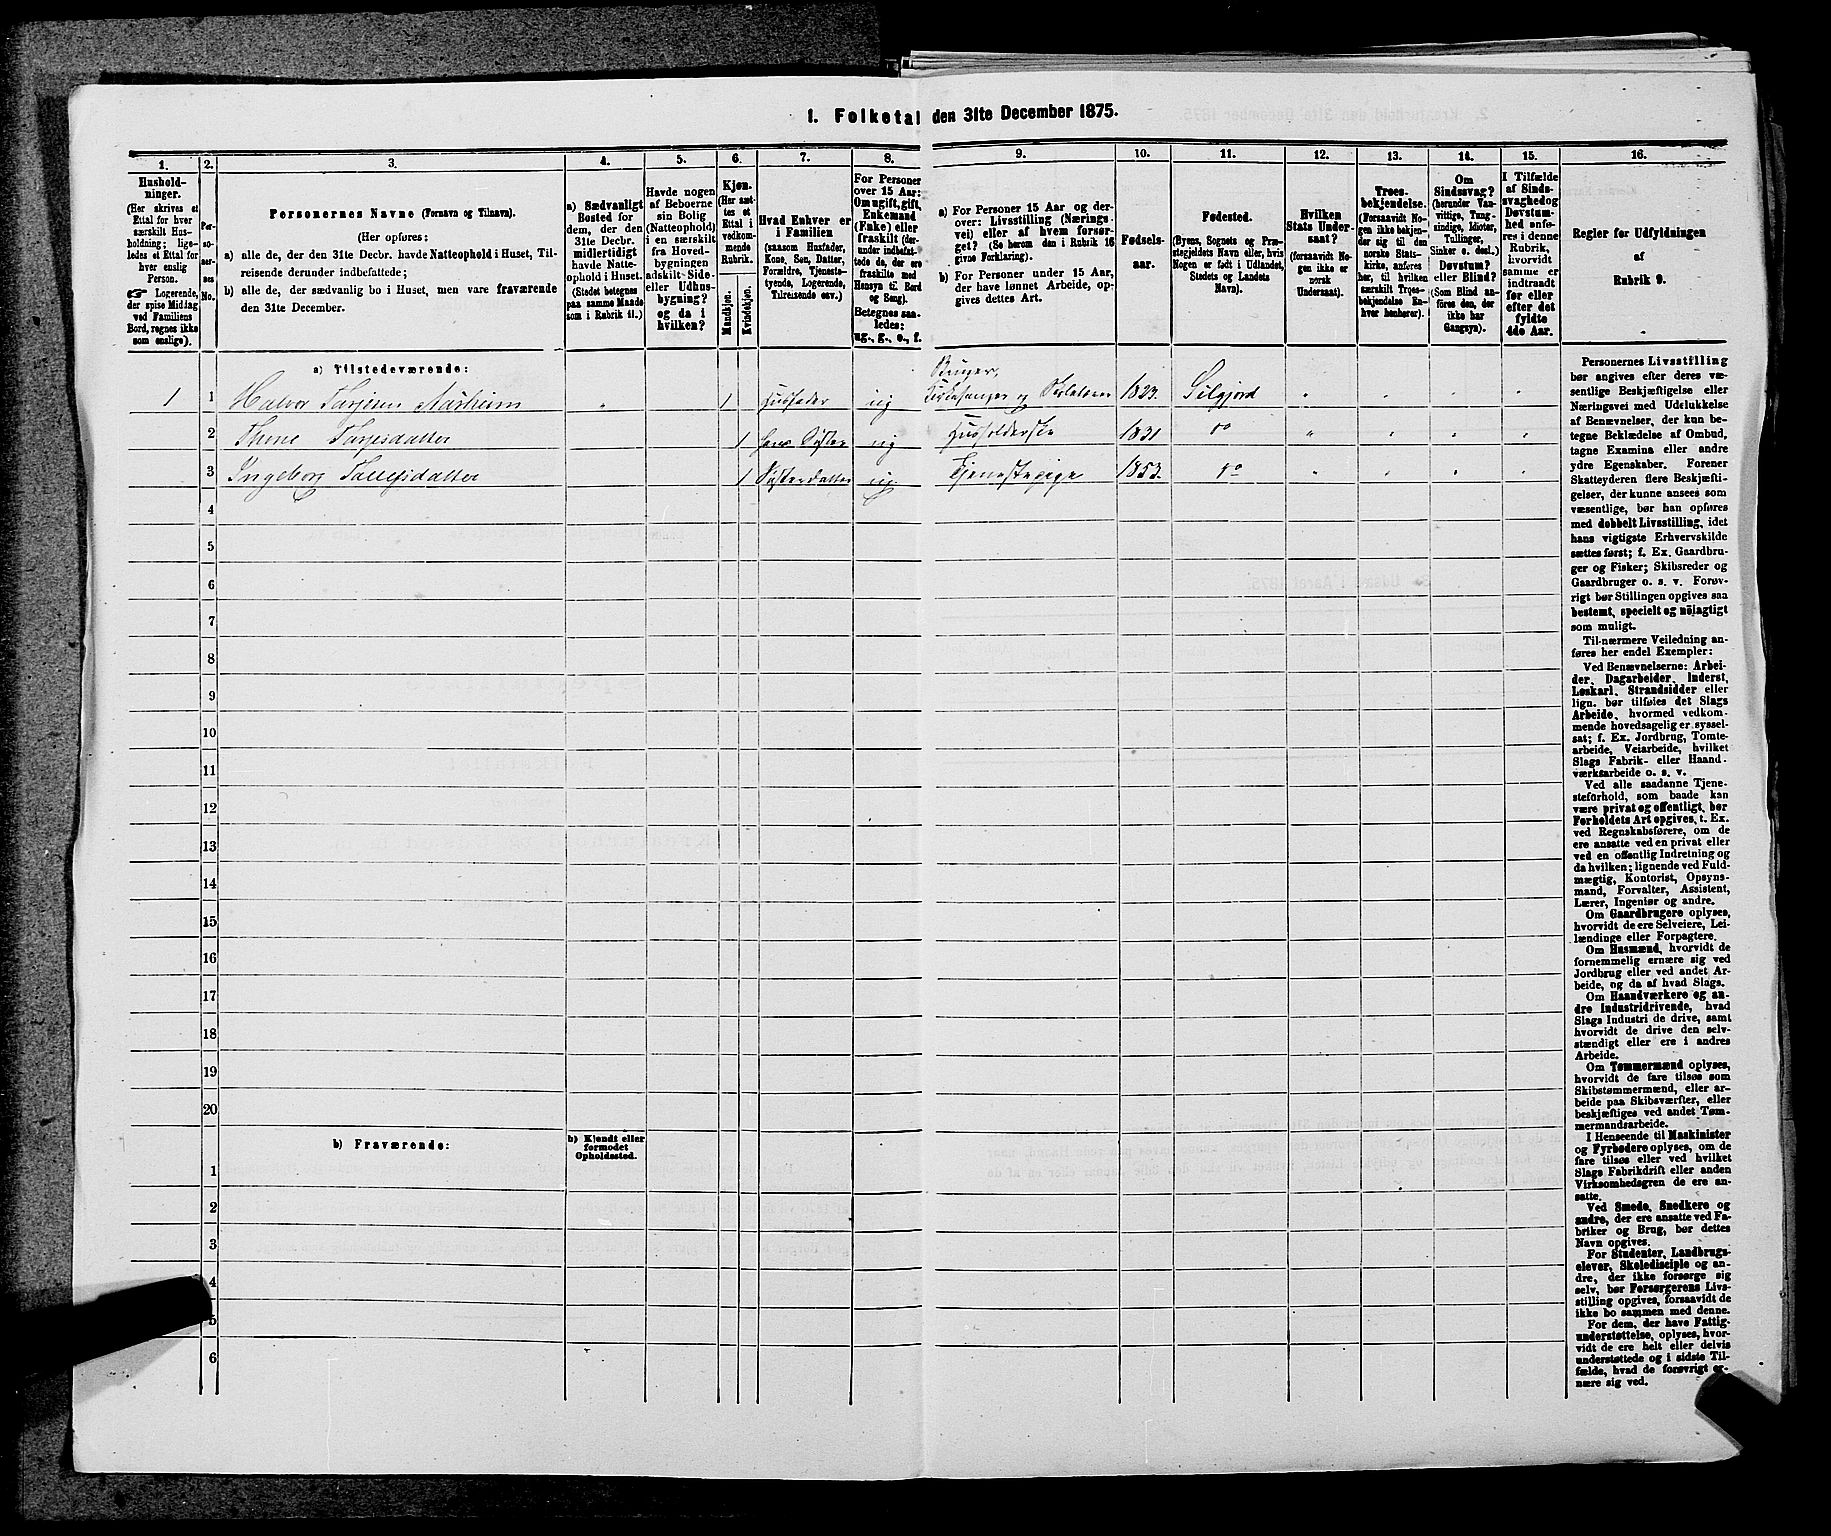 1. Folketal den 31te December 1875.
1. 2. 3. 4. 5. 6. 7. 8. 9. 10. 11. 12. 13. 14. 15. 16.
Hushold-
ninger.
(Her skrives et
Ettal for hver
særskilt Hus-
holdning; lige-
ledes et Ettal for
hver enslig
Person.
☞ Logerende,
der spise Middag
ved Familiens
Bord, regnes ikke
som enslige).
Per-
so-
ner-
nes
No.
Personernes Navne (Fornavn og Tilnavn).
(Her opføres:
a) alle de, der den 31te Decbr. havde Natteophold i Huset, Til-
reisende derunder indbefattede;
b) alle de, der sædvanlig bo i Huset, men vare fraværende
den 31te December.
a) Sædvanligt
Bosted for
dem, der den
31te Decbr.
midlertidigt
havde Natte-
ophold i Huset.
(Stedet betegnes
paa samme Maade
som i Rubrik 11.)
Havde nogen
af Beboerne
sin Bolig
(Natteophold)
i en særskilt
fra Hoved-
bygningen
adskilt Side-
eller Udhus-
bygning?
og da i
hvilken?
Kjøn.
(Her sæt-
tes et
Ettal i
vedkom-
mende
Rubrik.
Mandkjøn.
Kvindekjøn.
Hvad Enhver er
i Familien
(saasom Husfader,
Kone, Søn, Datter,
Forældre, Tjeneste-
tyende, Logerende,
Tilreisende osv.)
For Personer
over 15 Aar:
Om ugift, gift,
Enkemand
(Enke) eller
fraskilt (der-
under indbefat-
tede de, der ere
fraskilte med
Hensyn til Bord
og Seng).
Betegnes saa-
ledes:
ug., g., e., f.
a) For Personer 15 Aar og der-
over: Livsstilling (Nærings-
vei) eller af hvem forsør-
get? (Se herom den i Rubrik 16
givne Forklaring).
b) For Personer under 15 Aar,
der have lønnet Arbeide, op-
gives dettes Art.
Fødsels-
aar.
Fødested.
(Byens, Sognets og Præ-
stegjeldets Navn eller, hvis
Nogen er født i Udlandet,
Stedets og Landets
Navn).
Hvilken
Stats Under-
saat?
(forsaavidt No-
gen ikke er
norsk
Undersaat).
Troes-
bekjendelse.
(Forsaavidt No-
gen ikke bekjen-
der sig til den
norske Stats-
kirke, anføres
her, til hvilken
særskilt Troes-
bekjendelse En-
hver henhører).
Om
Sindssvag?
(herunder Van-
vittige, Tung-
sindige, Idioter,
Tullinger,
Sinker o. desl.)
Døvstum?
eller Blind?
(Som Blind an-
føres den, der
ikke har
Gangsyn).
I Tilfælde
af Sinds-
svaghed og
Døvstum-
hed anfø-
res i denne
Rubrik,
hvorvidt
samme er
indtraadt
før eller
efter det
fyldte
4de Aar.
Regler for Udfyldningen
af
Rubrik 9.
a) Tilstedeværende:
1 1 Halvor Tarjesen Aasheim „ 1 Husfader ug
Kirkesanger og Skolelærer 1823. Silgjord „ „ „ „
2 Thone Tarjesdatter 1 hans Søster ug Husholderske 1831 do „ „ „ „
3 Ingeborg Tallefsdatter 1 Søsterdatter ug. Tjenestepige 1853. do „ „ „ „
4
5
6
7
8
9
10
11
12
13
14
15
16
17
18
19
20
b) Fraværende:
b) Kjendt eller
formodet
Opholdssted.
1
2
3
4
5
6
Personernes Livsstilling
bør angives efter deres væ-
sentlige Beskjæftigelse eller
Næringsvei med Udelukkelse
af Benævnelser, der kun be-
tegne Beklædelse af Ombud,
tagne Examina eller andre
ydre Egenskaber. Forener
Skatteyderen flere Beskjæfti-
gelser, der kunne ansees som
væsentlige, bør han opføres
med dobbelt Livsstilling, idet
hans vigtigste Erhvervskilde
sættes først; f. Ex. Gaardbru-
ger og Fisker; Skibsreder og
Gaardbruger o. s. v. Forøv-
rigt bør Stillingen opgives saa
bestemt, specielt og nöiagtigt
som muligt.
Til nærmere Veiledning an-
føres her endel Exempler:
Ved Benævnelserne: Arbei-
der, Dagarbeider, Inderst,
Løskarl, Strandsidder eller
lign. bør tilføies det Slags
Arbeide, hvormed vedkom-
mende hovedsagelig er syssel-
sat; f. Ex. Jordbrug, Tomte-
arbeide, Veiarbeide, hvilket
Slags Fabrik- eller Haand-
værksarbeide o. s. v.
Ved alle saadanne Tjene-
steforhold, som baade kan
være privat og offentligt, bør
Forholdets Art opgives, t. Ex.
ved Regnskabsførere, om de
ere ansatte ved en privat eller
ved en offentlig Indretning og
da hvilken; lignende ved Fuld-
mægtig, Kontorist, Opsyns-
mand, Forvalter, Assistent,
Lærer, Ingeniør og andre.
Om Gaardbrugere oplyses,
hvorvidt de ere Selveiere, Lei-
lændinge eller Forpagtere.
Om Husmænd, hvorvidt de
fornemmelig ernære sig ved
Jordbrug eller ved andet Ar-
beide, og da af hvad Slags.
Om Haandværkere og an-
dre Industridrivende, hvad
Slags Industri de drive, samt
hvorvidt de drive den selv-
stændigt eller ere i andres
Arbeide.
Om Tømmermænd oplyses,
hvorvidt de fare tilsøs som
Skibstømmermænd, eller ar-
beide paa Skibsværfter, eller
beskjæftiges ved andet Tøm-
mermandsarbeide.
I Henseende til Maskinister
og Fyrbødere oplyses, om de
fare tilsøs eller ved hvilket
Slags Fabrikdrift eller anden
Virksomhedsgren de ere an-
satte.
Ved Smede, Snedkere og
andre, der ere ansatte ved Fa-
briker og Brug, bør dettes
Navn opgives.
For Studenter, Landbrugs-
elever, Skoledisciple og an-
dre, der ikke forsørge sig
selv, bør Forsørgerens Livs-
stilling opgives, forsaavidt de
ikke bo sammen med denne.
For dem, der have Fattig-
understøttelse, oplyses, hvor-
vidt de ere helt eller delvis
understøttede og i sidste Til-
fælde, hvad de forøvrigt er-
nære sig ved.